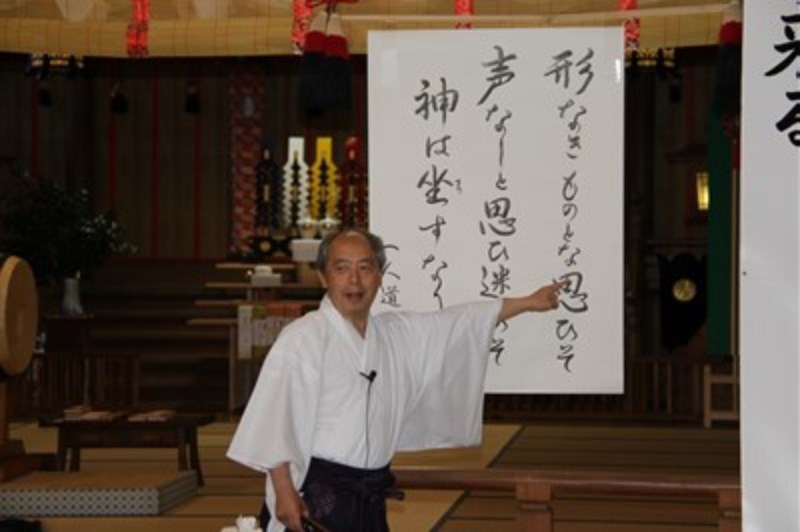 形なきものとな思ひそ
声なしと思ひ迷ひそ
神は坐すなり
人道
来る